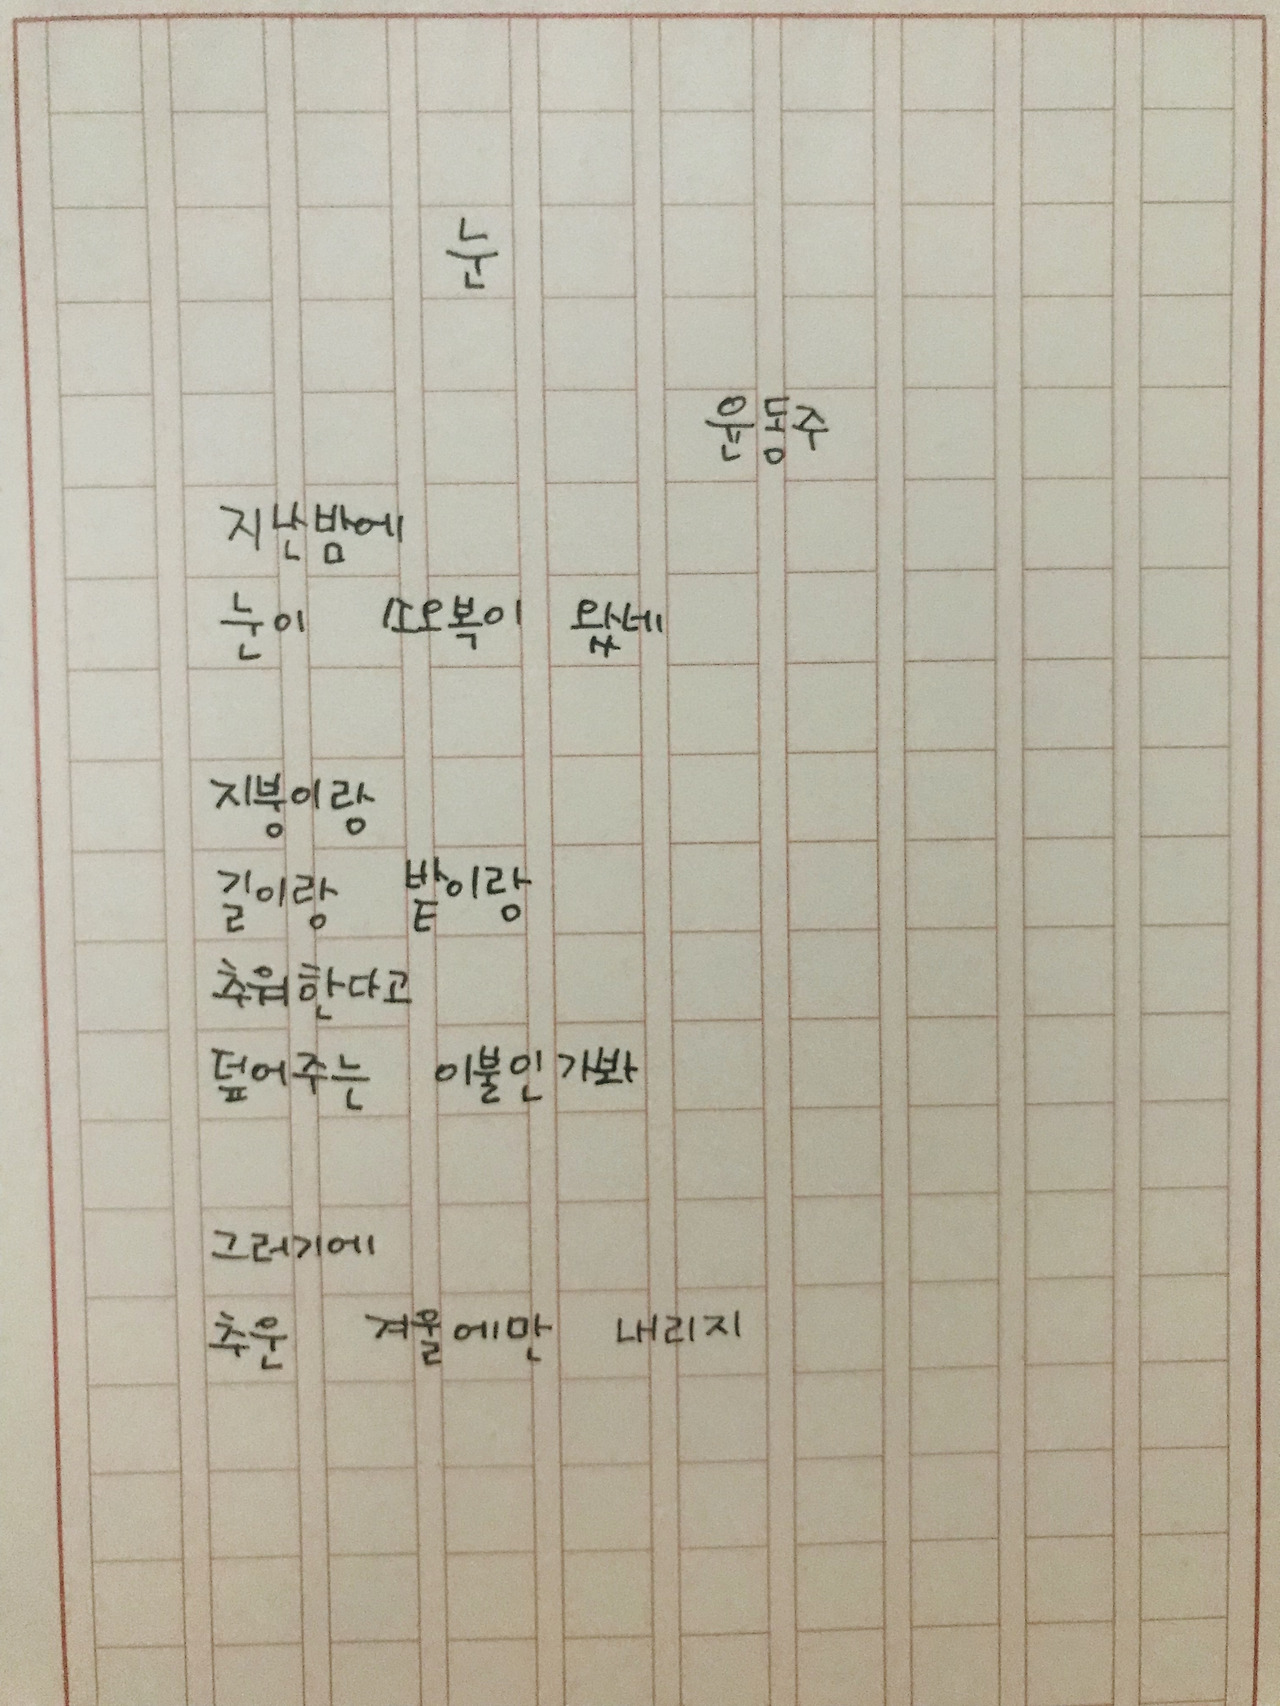 눈
윤동주
지난밤에
눈이 또오복이 왔네
지붕이랑
길이랑 밭이랑
추워한다고
덮어주는 이불인가봐
그러기에
추운 겨울에만 내리지